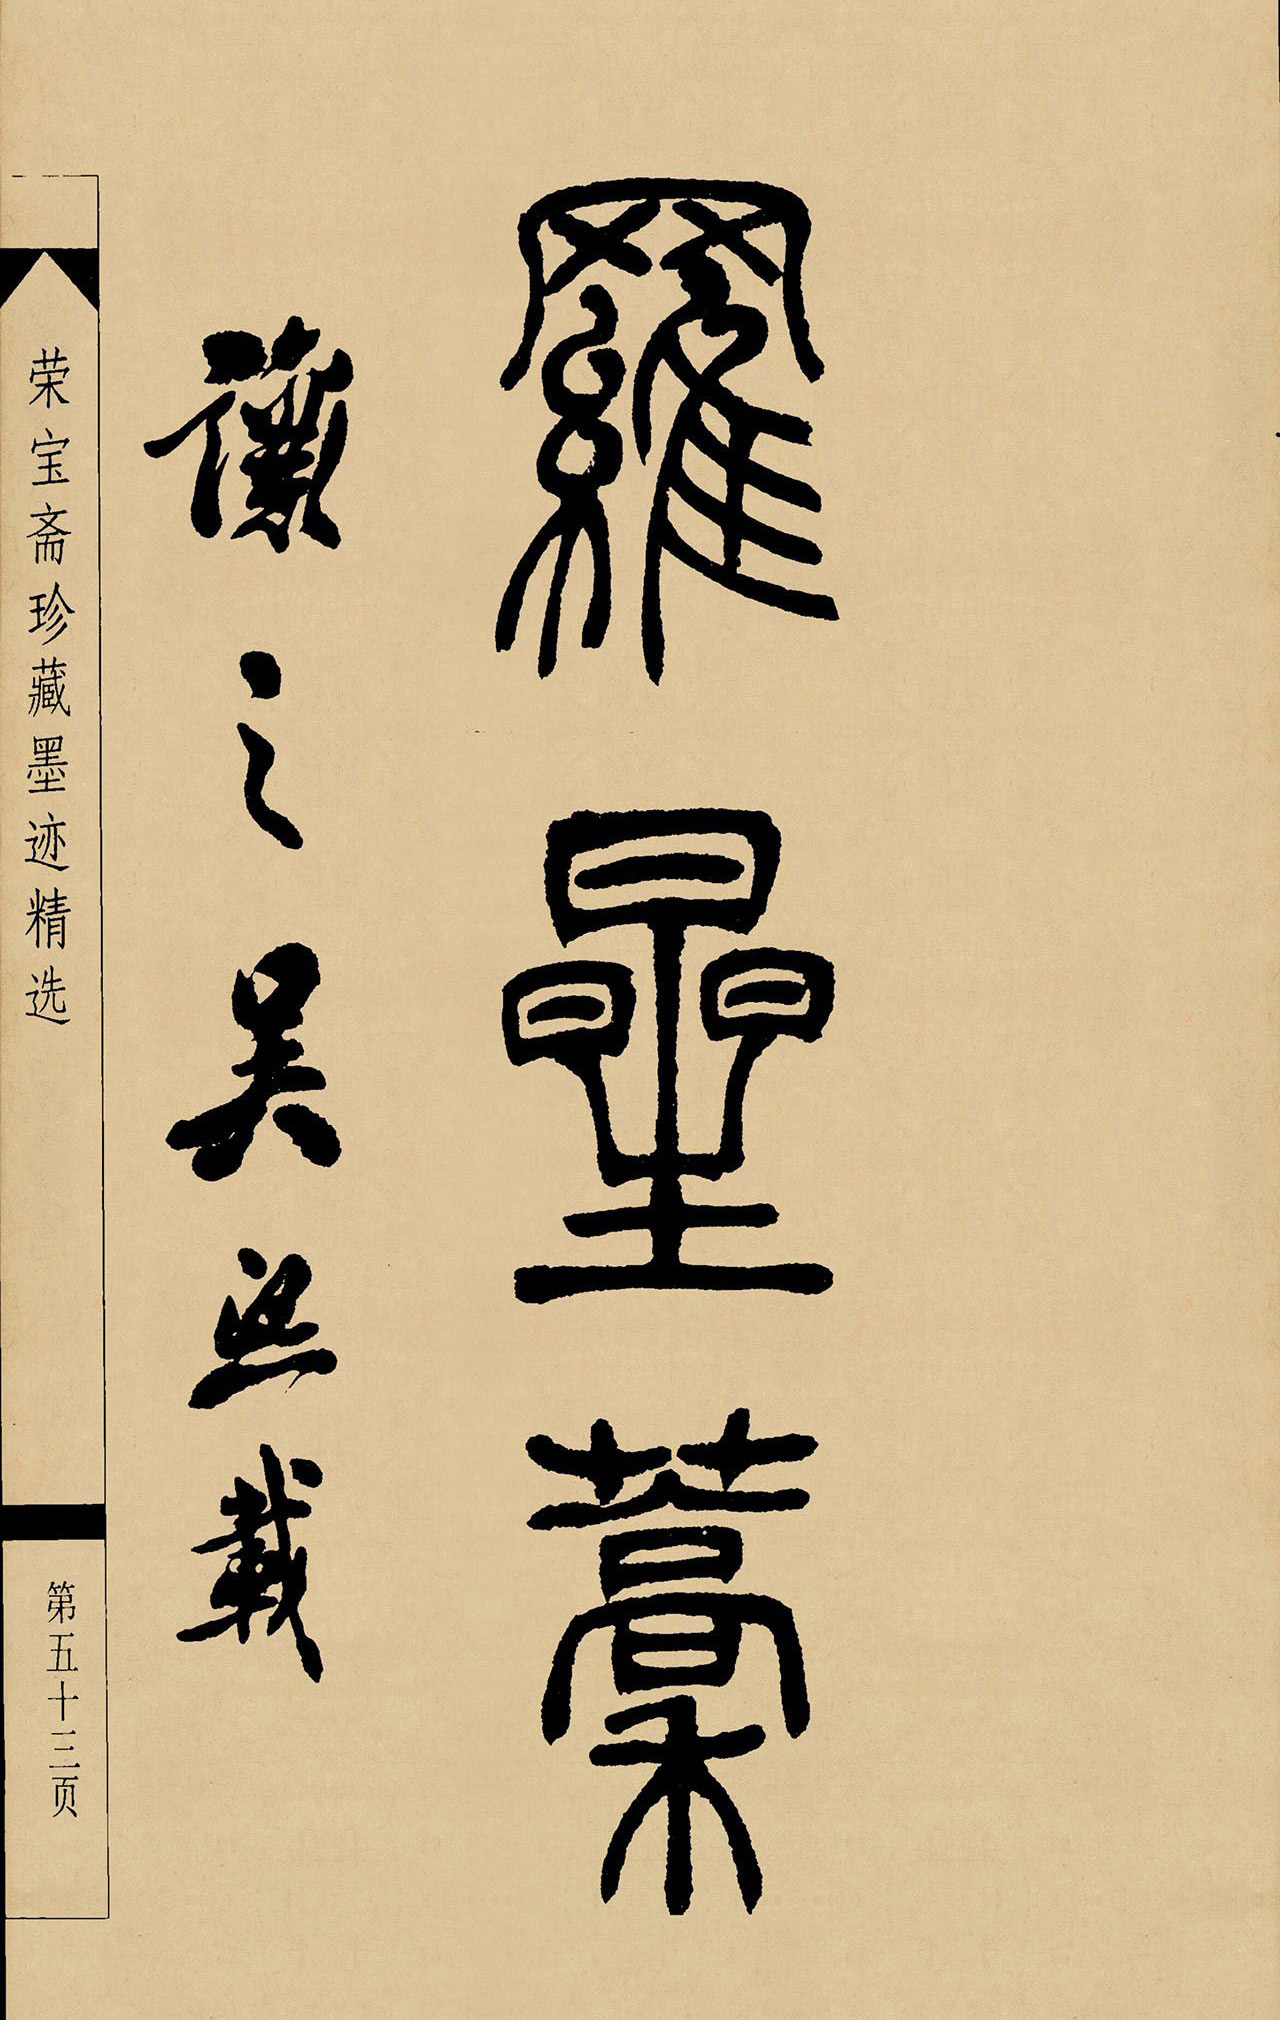 羅星藳
讓之吳熙載
荣宝斋珍藏墨迹精选
第五十三页